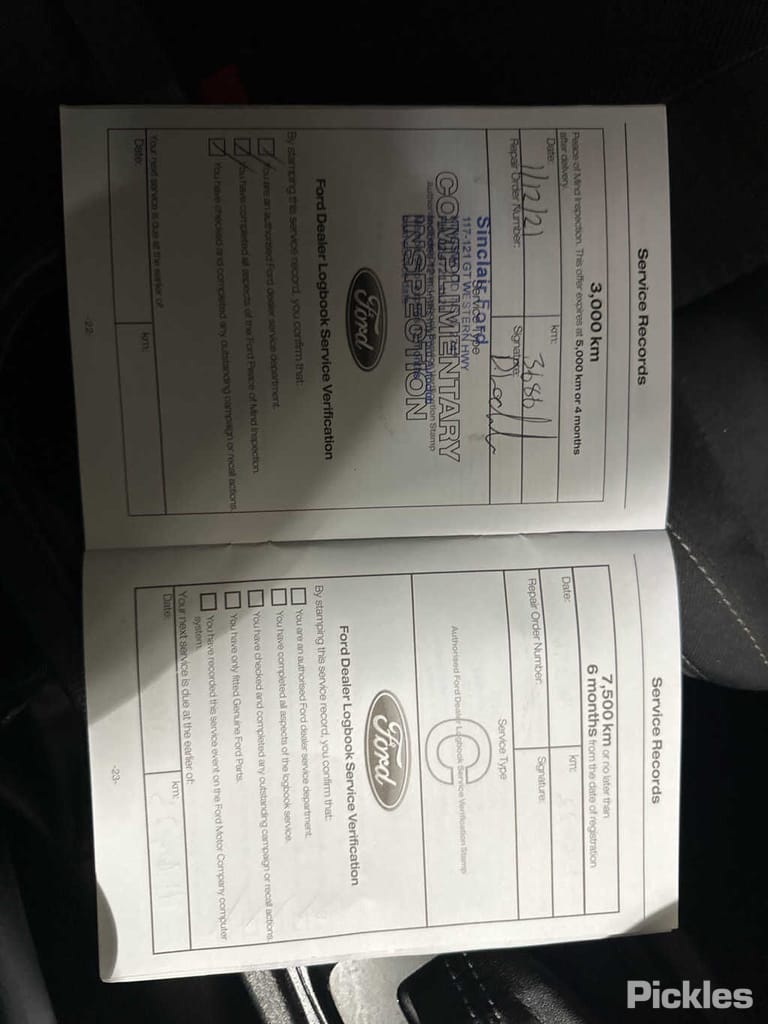 Service Records
3,000 km
Peace of Mind Inspection. This offer expires at 5,000 km or 4 months
after delivery.
Date: 11/12/21
km: 3686
Repair Order Number:
Signature:
Sinclair Ford
117-121 GT WESTERN HWY
COMPLIMENTARY
INSPECTION
Ford
Ford Dealer Logbook Service Verification
By stamping this service record, you confirm that:
You are an authorised Ford dealer service department.
You have completed all aspects of the Ford Peace of Mind Inspection.
You have checked and completed any outstanding campaign or recall actions.
Your next service is due at the earlier of:
Date:
km:
-22-
Service Records
7,500 km or no later than
6 months from the date of registration
Date:
km:
Repair Order Number:
Signature:
Service Type
C
Authorised Ford Dealer Logbook Service Verification Stamp
Ford
Ford Dealer Logbook Service Verification
By stamping this service record, you confirm that:
You are an authorised Ford dealer service department.
You have completed all aspects of the logbook service.
You have checked and completed any outstanding campaign or recall actions.
You have only fitted Genuine Ford Parts.
You have recorded this service event on the Ford Motor Company computer
system.
Your next service is due at the earlier of:
Date:
km:
-23-
Pickles